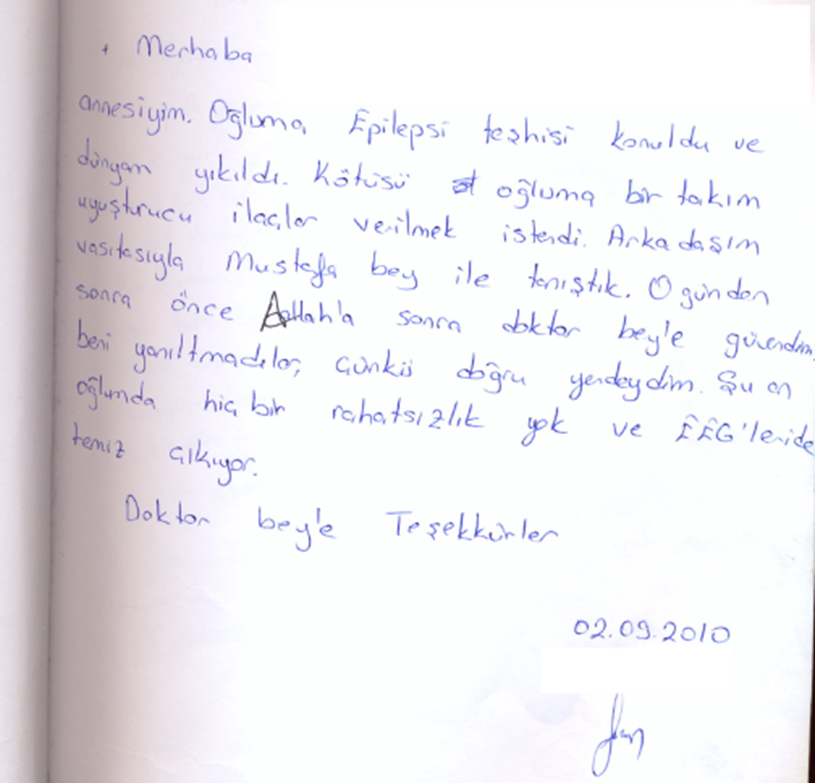 + Merhaba
annesiyim. Oğluma Epilepsi teşhisi konuldu ve
dünyam yıkıldı. Kötüsü oğluma bir takım
uyuşturucu ilaçlar verilmek istendi. Arkadaşım
vasıtasıyla Mustafa bey ile tanıştık. O günden
sonra önce Allah'a sonra doktor bey'e güvendim,
beni yanıltmadılar, çünkü doğru yerdeydim. Şu an
oğlumda hiç bir rahatsızlık yok ve EEG'leride
temiz çıkıyor.
Doktor bey'e Teşekkürler
02.09.2010